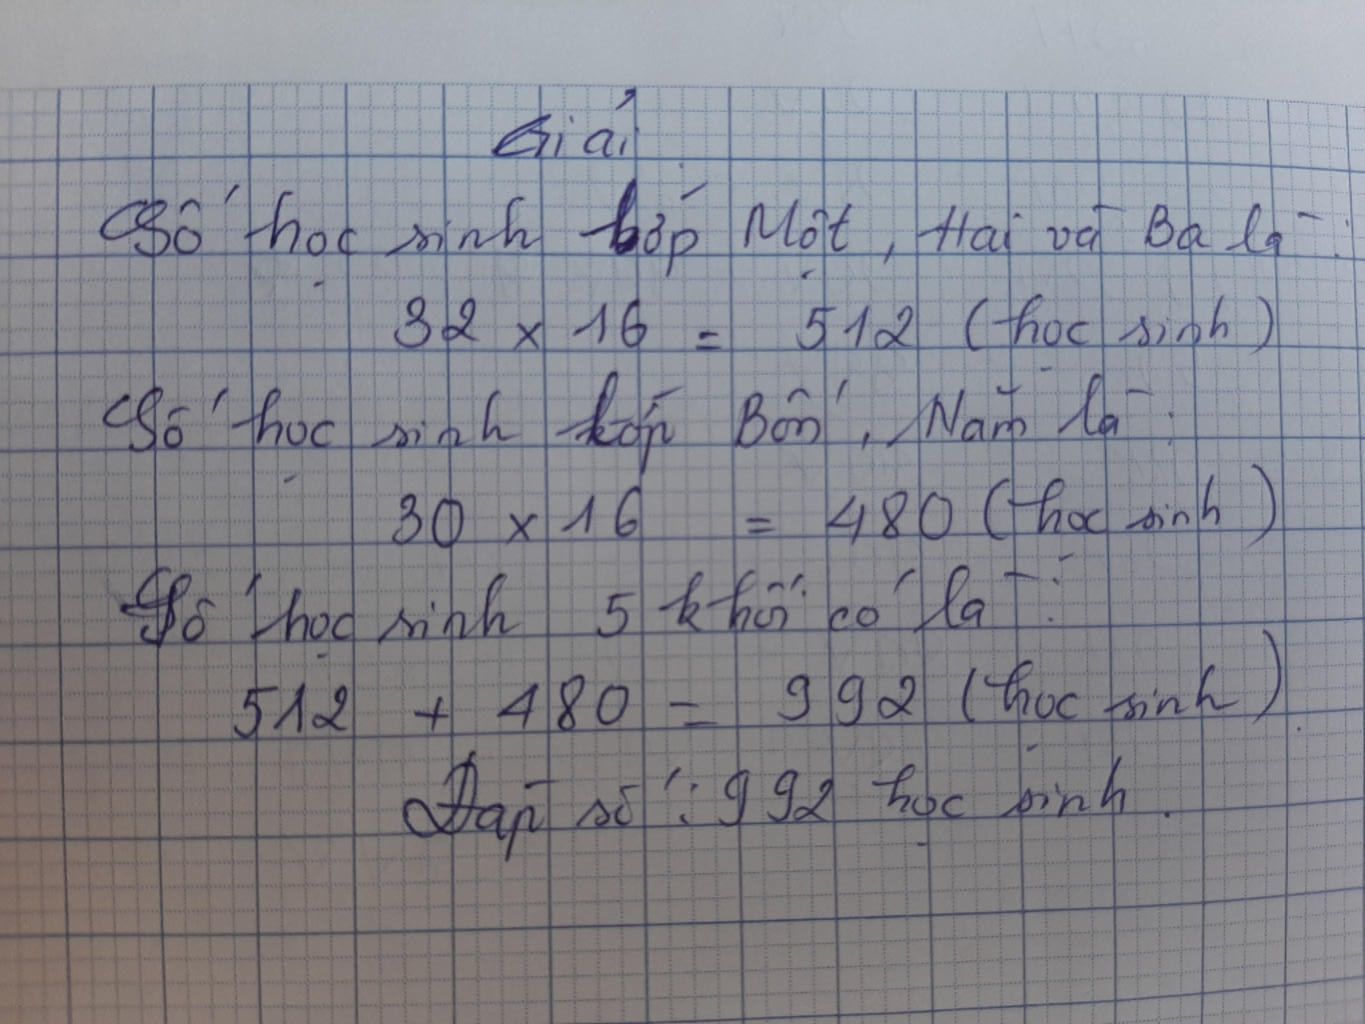 Giải
Số học sinh lớp Một, Hai và Ba là:
32 x 16 = 512 (học sinh)
Số học sinh lớp Bốn, Năm là:
30 x 16 = 480 (học sinh)
Số học sinh 5 khối có là:
512 + 480 = 992 (học sinh)
Đáp số: 992 học sinh.